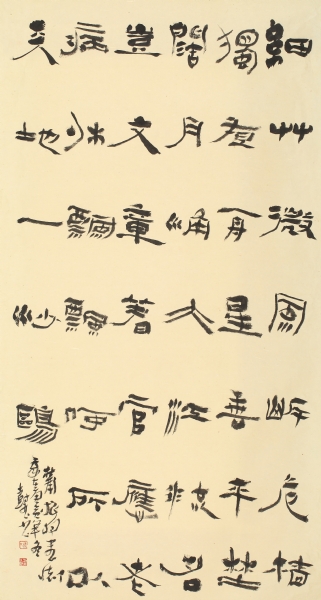 細艸微風岸危檣
獨夜舟星垂平埜
闊月涌大江流名
豈文章著官應老
病休飄飄何所似
天地一沙鷗